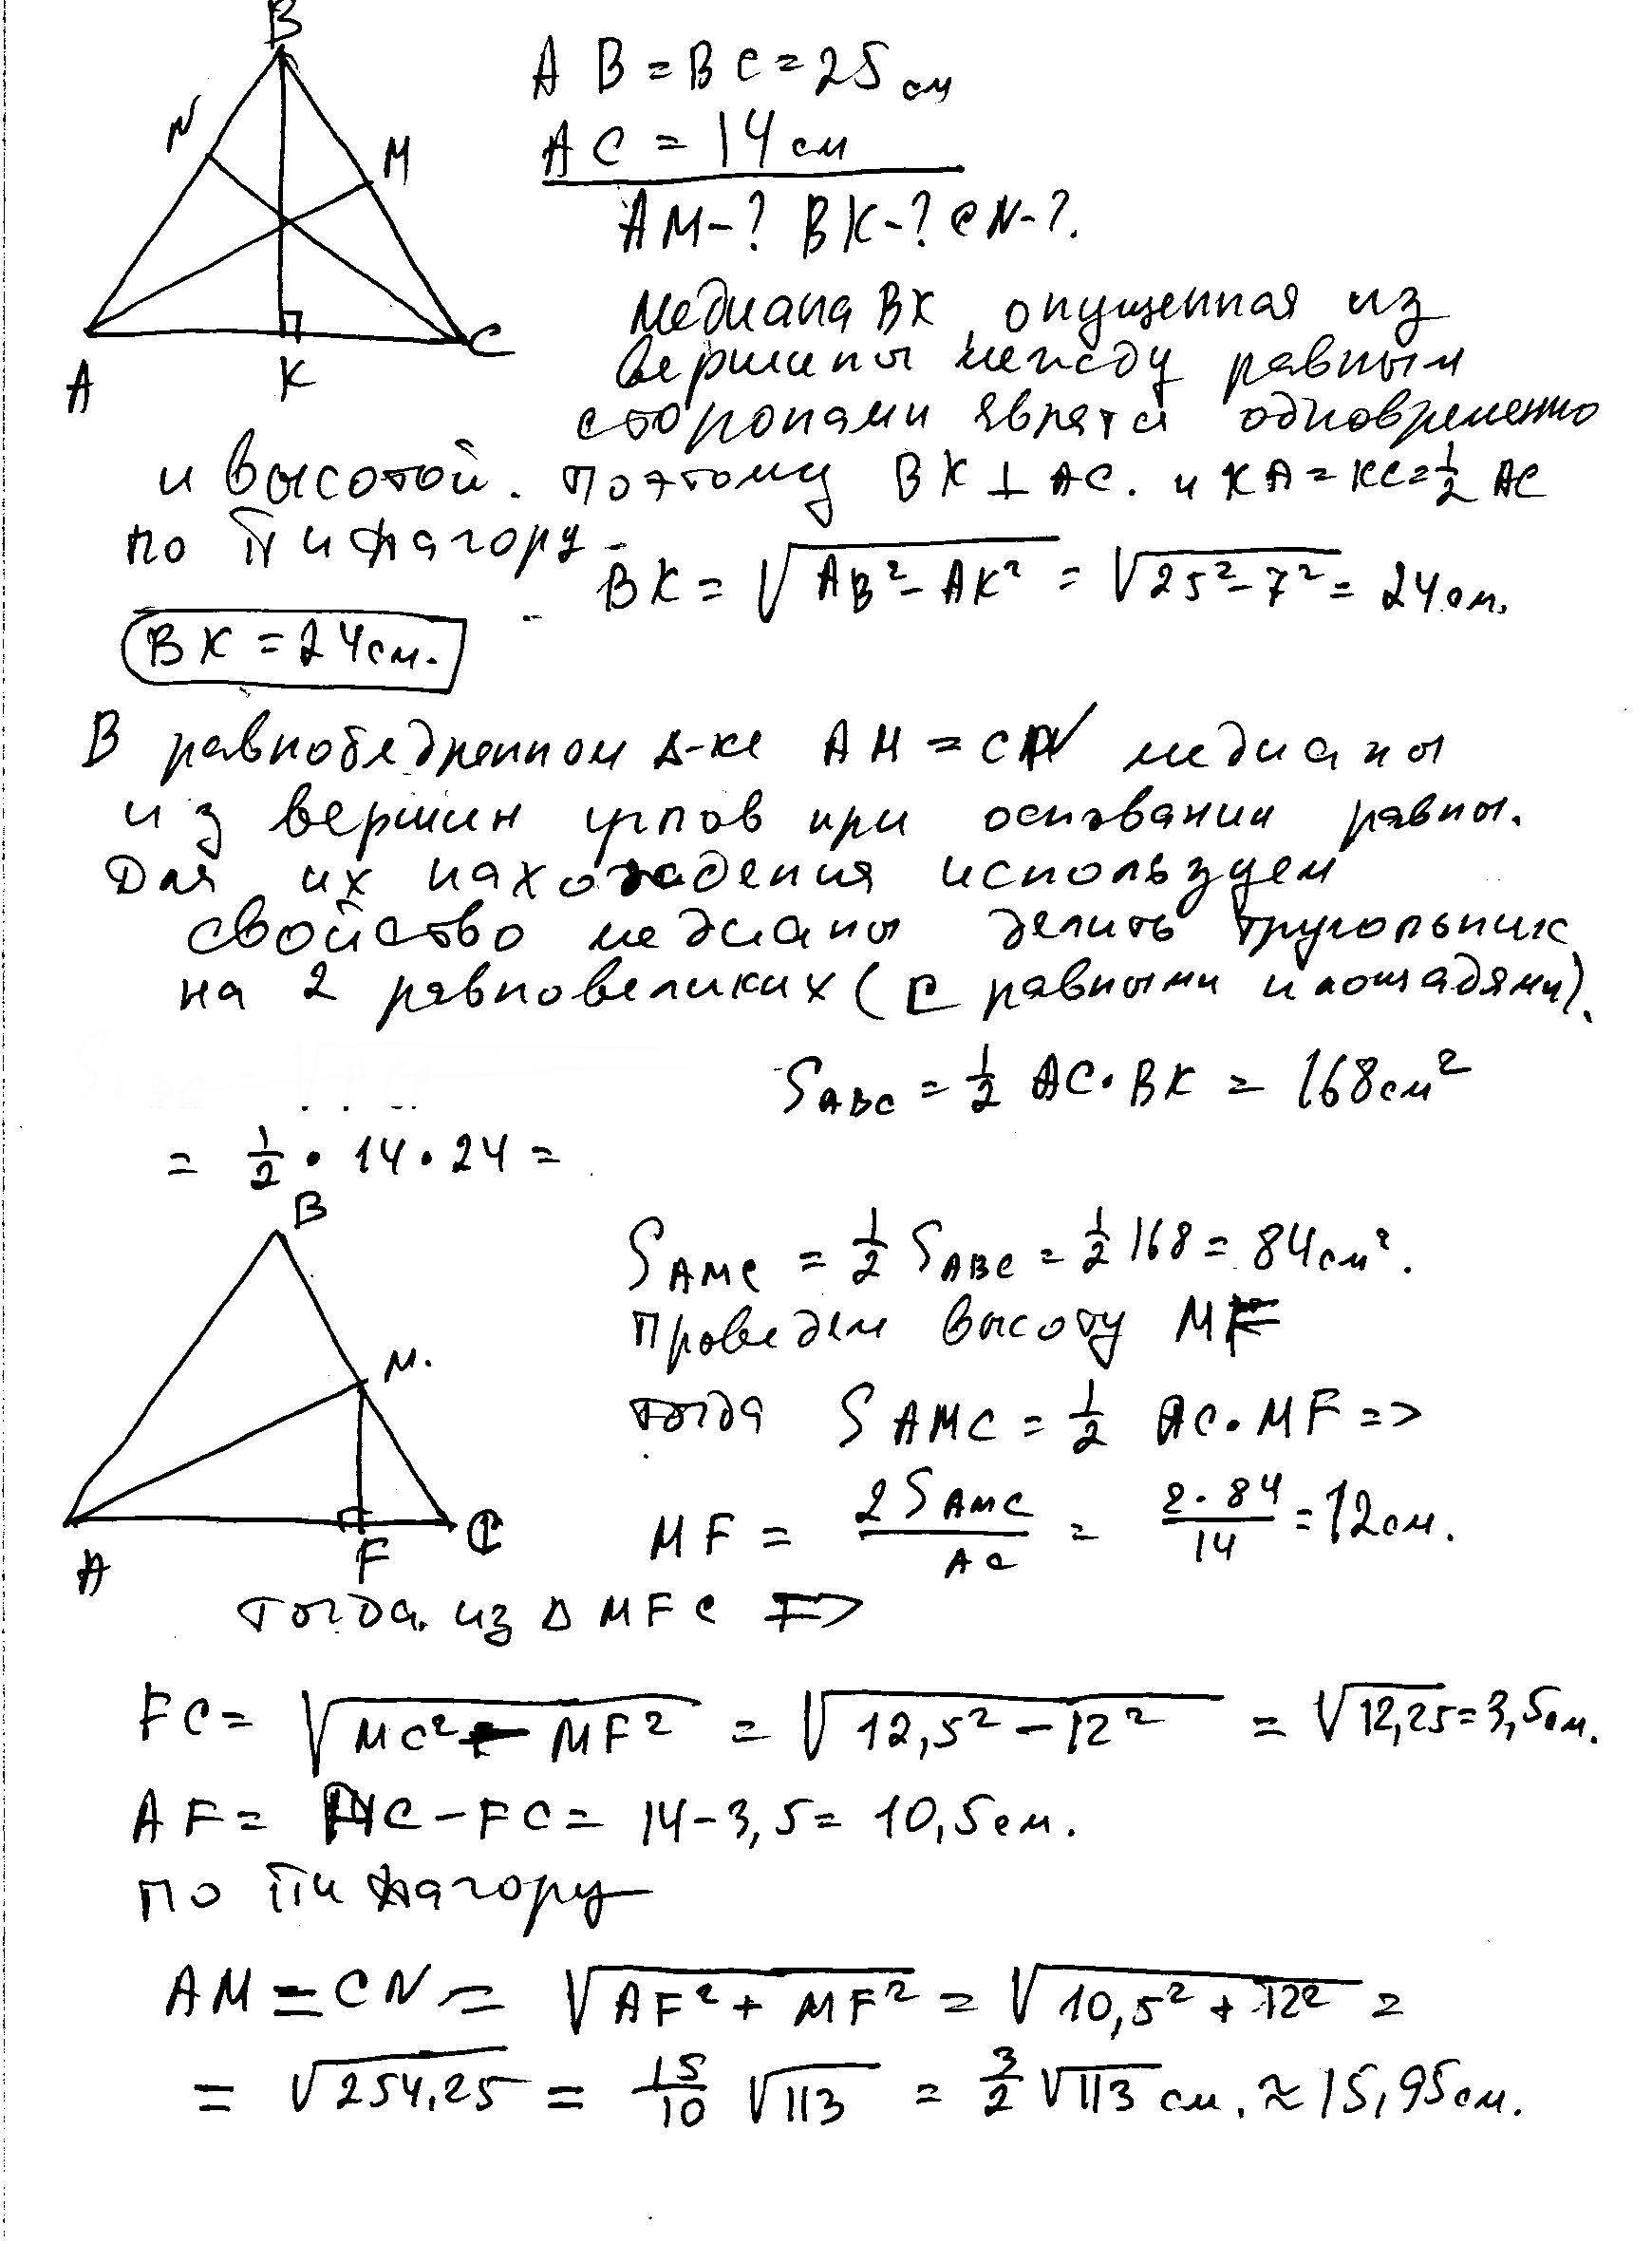 B
N
M
A
K
C
AB = BC = 25 см
AC = 14 см
AM - ? BK - ? CN - ?.
Медиана BK, опущенная из
вершины между равным
сторонами явятся одновременно
и высотой. Поэтому BK ⊥ AC. и KA = KC = 1/2 AC
по Пифагору
BK = √(AB² - AK²) = √(25² - 7²) = 24 см.
BK = 24 см.
В равнобедренном Δ-ке AM = CN медианы
из вершин углов при основании равны.
Для их нахождения используем
свойство медианы делить тругольник
на 2 равновеликих (с равными площадями).
S_ABC = 1/2 AC · BK = 168 см²
= 1/2 · 14 · 24 =
B
M.
A
F
C
S_AMC = 1/2 S_ABC = 1/2 168 = 84 см².
Проведем высоту MF
тогда S_AMC = 1/2 AC · MF =>
MF = 2 S_AMC / AC = 2 · 84 / 14 = 12 см.
тогда. из Δ MFC =>
FC = √(MC² - MF²) = √(12,5² - 12²) = √12,25 = 3,5 см.
AF = AC - FC = 14 - 3,5 = 10,5 см.
по Пифагору
AM = CN = √(AF² + MF²) = √(10,5² + 12²) =
= √254,25 = 15/10 √113 = 3/2 √113 см. ≈ 15,95 см.